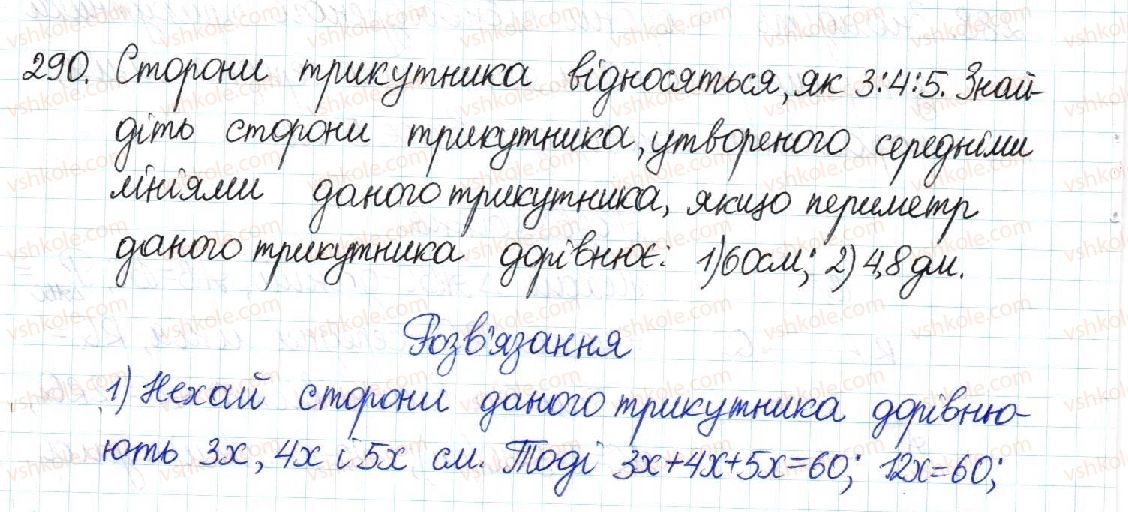 290. Сторони трикутника відносяться, як 3:4:5. Знай-
діть сторони трикутника, утвореного середніми
лініями даного трикутника, якщо периметр
даного трикутника дорівнює: 1) 60 см; 2) 4,8 дм.
Розв'язання
1) Нехай сторони даного трикутника дорівню-
ють 3x, 4x і 5x см. Тоді 3x+4x+5x=60; 12x=60;